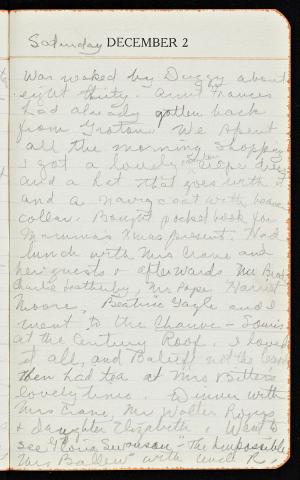 Saturday DECEMBER 2
Was waked by Duggy about
eight thirty. Aunt Frances
had already gotten back
from Groton. We spent
all the morning shopping
I got a lovely crepe dress
and a hat that goes with it
and a navy coat with
collar. Bought pocket book for
Mamma's Xmas present. Had
lunch with Mrs Crane and
her guests & afterwards Mr
Charlie Mr Pope Harriet
Moore, Beatrice Gagle and I
went to the Chauve - Souris
at the Century Roof. I loved
it all, and Balieff not the least
Then had tea at Mrs Bitter's
lovely time. Dinner with
Mrs Crane, Mr Walter
& daughter Elizabeth. Went to
see Gloria Swanson "The Impossible
Mrs Bellew" with Uncle R.